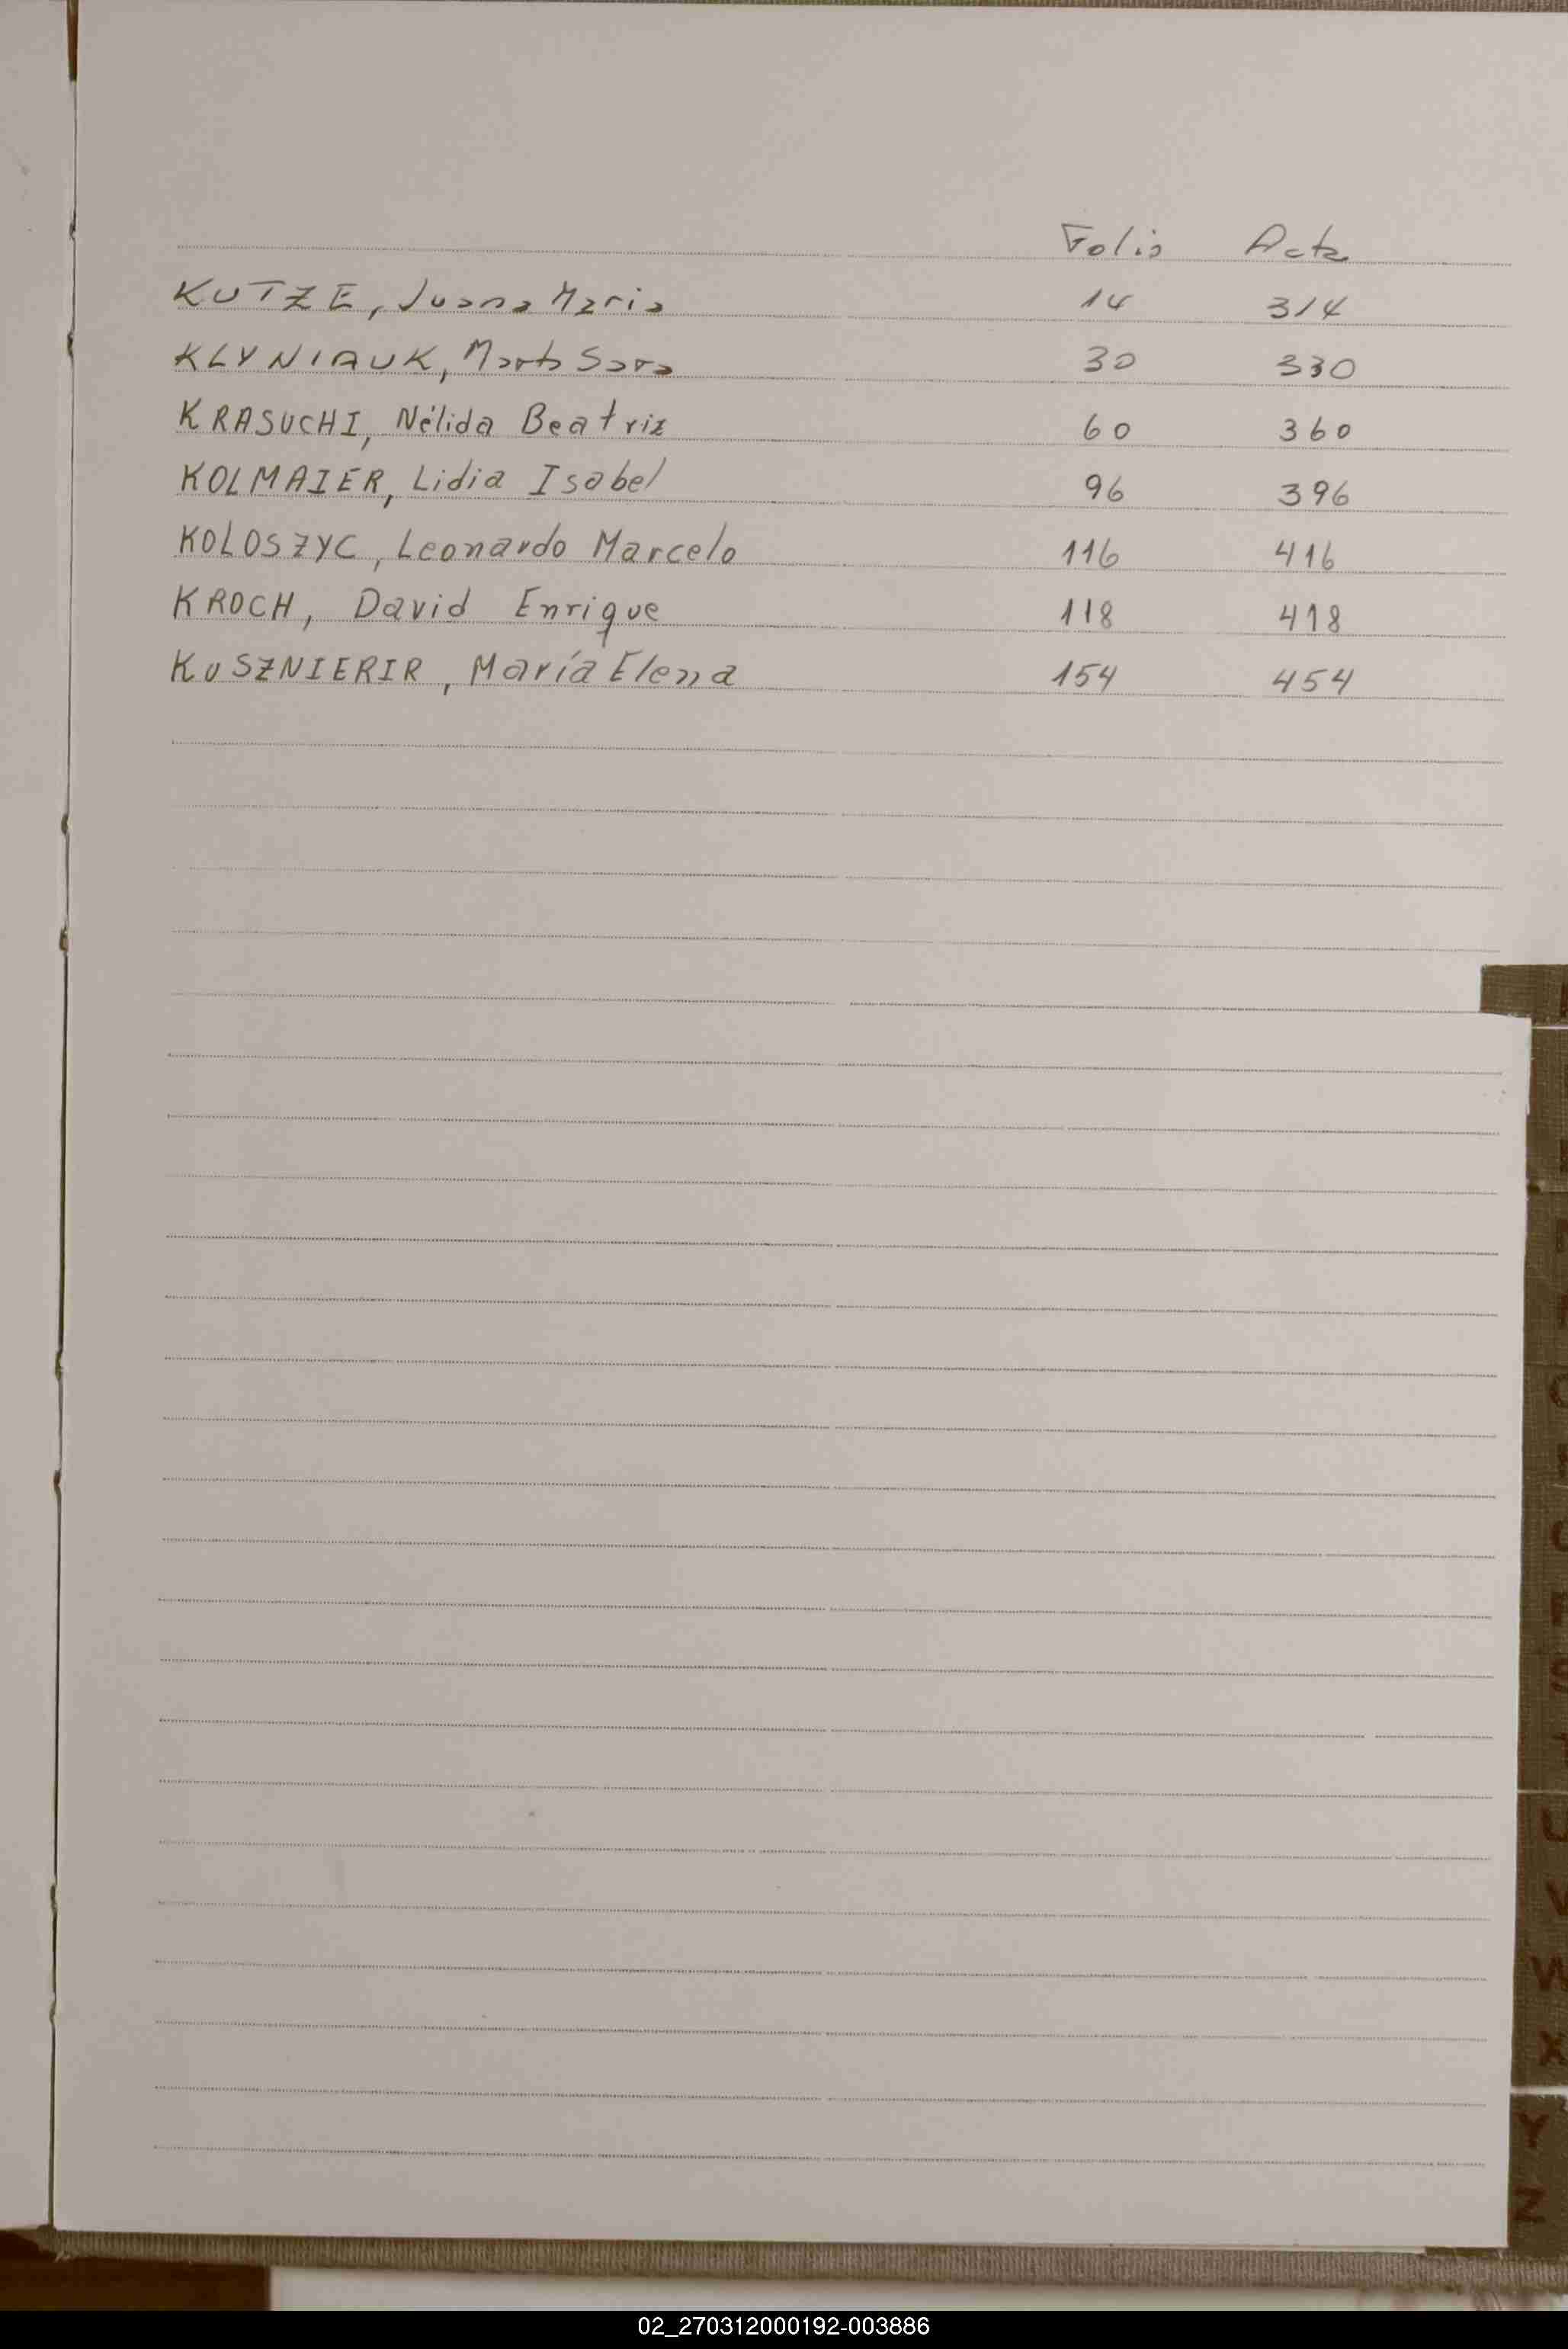 Folio Acta
KUTZE, Juana Maria 14 314
KLYNIAUK, Marta Sara 30 330
KRASUCHI, Nélida Beatriz 60 360
KOLMAIER, Lidia Isabel 96 396
KOLOSZYC, Leonardo Marcelo 116 416
KROCH, David Enrique 118 418
KUSZNIERIR, María Elena 154 454
U
V
W
X
Y
Z
02_270312000192-003886